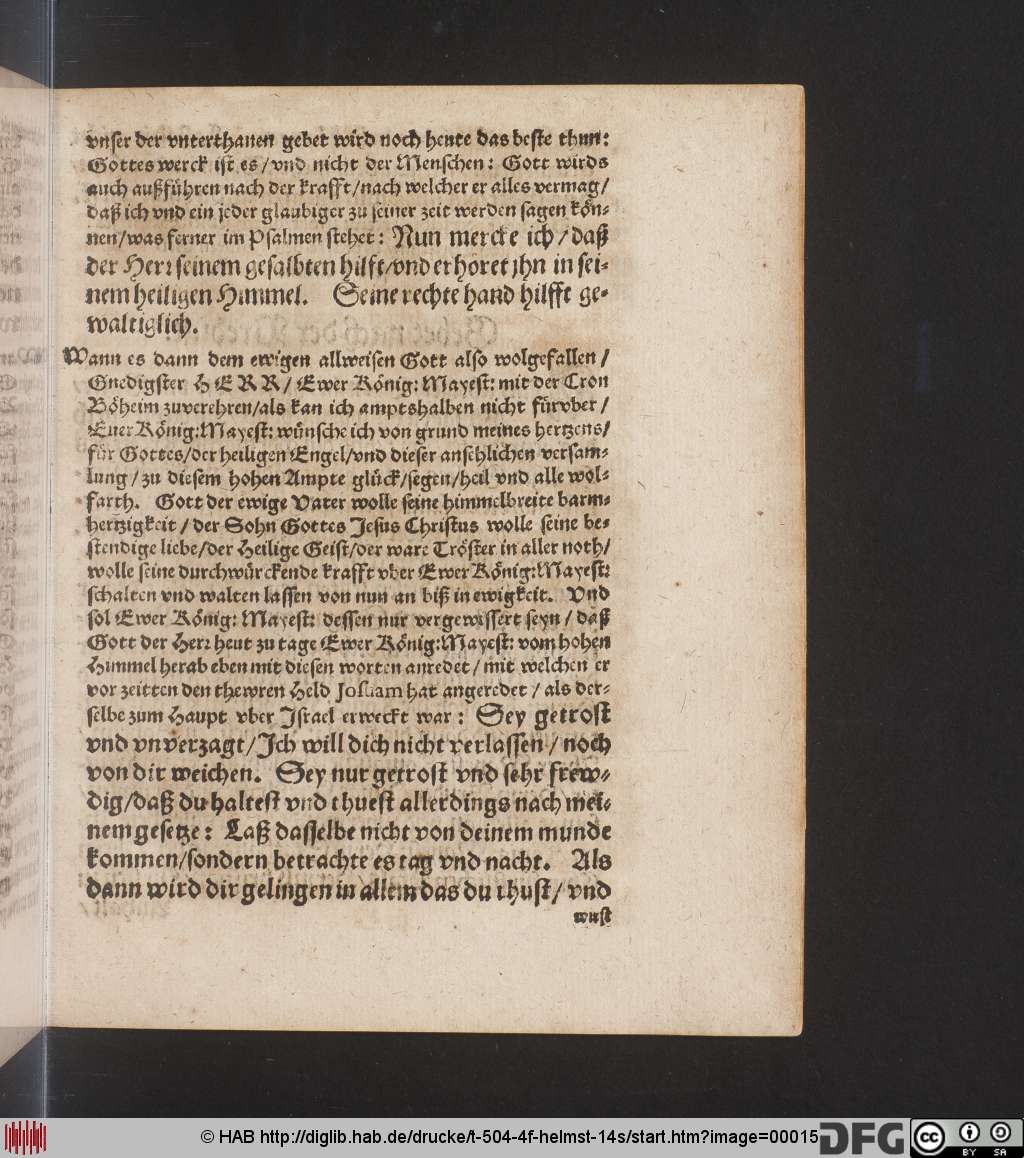 vnser der vnterthanen gebet wird noch heute das beste thun:
Gottes werck ist es/vnd nicht der Menschen: Gott wirds
auch außführen nach der krafft/nach welcher er alles vermag/
daß ich vnd ein jeder glaubiger zu seiner zeit werden sagen kön-
nen/was ferner im Psalmen stehet: Nun mercke ich/daß
der Herr seinem gesalbten hilft/vnd erhöret jhn in sei-
nem heiligen Himmel. Seine rechte hand hilfft ge-
waltiglich.
Wann es dann dem ewigen allweisen Gott also wolgefallen/
Gnedigster HERR/Ewer König: Mayest: mit der Cron
Böheim zuverehren/als kan ich amptshalben nicht fürvber/
Euer König: Mayest: wünsche ich von grund meines hertzens/
für Gottes/der heiligen Engel/vnd dieser ansehlichen versam-
lung/zu diesem hohen Ampte glück/segen/heil vnd alle wol-
farth. Gott der ewige Vater wolle seine himmelbreite barm-
hertzigkeit/der Sohn Gottes Jesus Christus wolle seine be-
stendige liebe/der Heilige Geist/der ware Tröster in aller noth/
wolle seine durchwürckende krafft vber Ewer König: Mayest:
schalten vnd walten lassen von nun an biß in ewigkeit. Vnd
sol Ewer König: Mayest: dessen nur vergewissert seyn/daß
Gott der Herr heut zu tage Ewer König: Mayest: vom hohen
Himmel herab eben mit diesen worten anredet/mit welchen er
vor zeitten den thewren Held Josuam hat angeredet/als der-
selbe zum Haupt vber Israel erweckt war: Sey getrost
vnd vnverzagt/Ich will dich nicht verlassen/noch
von dir weichen. Sey nur getrost vnd sehr frew-
dig/daß du haltest vnd thuest allerdings nach mei-
nem gesetze: Laß dasselbe nicht von deinem munde
kommen/sondern betrachte es tag vnd nacht. Als
dann wird dir gelingen in allem das du thust/vnd
wust
© HAB http://diglib.hab.de/drucke/t-504-4f-helmst-14s/start.htm?image=00015
DFG
cc BY SA